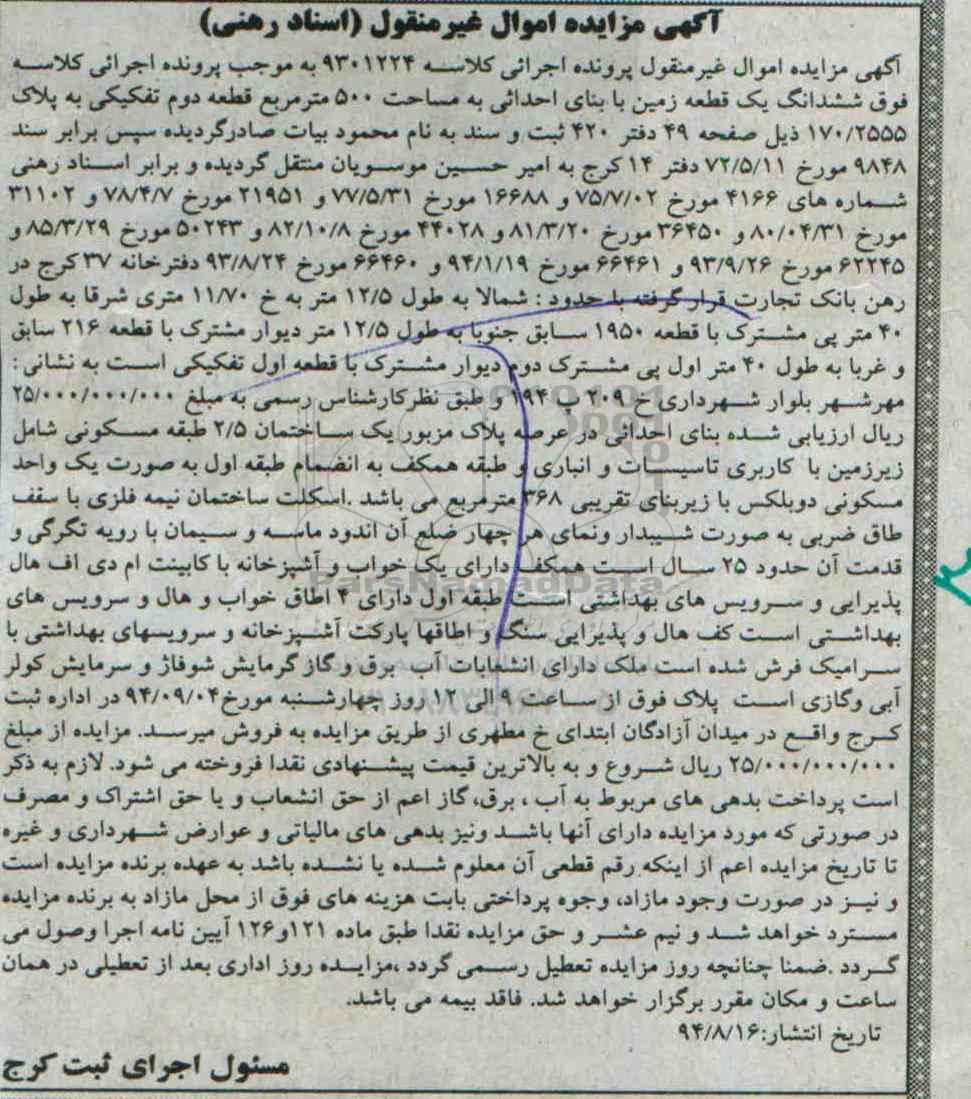 آگهی مزایده اموال غیرمنقول (اسناد رهنی)
آگهی مزایده اموال غیرمنقول پرونده اجرائی کلاسه ۹۳۰۱۲۲۴ به موجب پرونده اجرائی کلاسه
فوق ششدانگ یک قطعه زمین با بنای احداثی به مساحت ۵۰۰ مترمربع قطعه دوم تفکیکی به پلاک
۱۷۰/۲۵۵۵ ذیل صفحه ۴۹ دفتر ۴۲۰ ثبت و سند به نام محمود بیات صادرگردیده سپس برابر سند
۹۸۴۸ مورخ ۷۲/۵/۱۱ دفتر ۱۴ کرج به امیر حسین موسویان منتقل گردیده و برابر اسناد رهنی
شماره های ۴۱۶۶ مورخ ۷۵/۷/۰۲ و ۱۶۶۸۸ مورخ ۷۷/۵/۳۱ و ۲۱۹۵۱ مورخ ۷۸/۴/۷ و ۳۱۱۰۲
مورخ ۸۰/۰۴/۳۱ و ۳۶۴۵۰ مورخ ۸۱/۳/۲۰ و ۴۴۰۲۸ مورخ ۸۲/۱۰/۸ و ۵۰۲۴۳ مورخ ۸۵/۳/۲۹ و
۶۲۲۴۵ مورخ ۹۳/۹/۲۶ و ۶۶۴۶۱ مورخ ۹۴/۱/۱۹ و ۶۶۴۶۰ مورخ ۹۳/۸/۲۴ دفترخانه ۳۷ کرج در
رهن بانک تجارت قرار گرفته با حدود : شمالا به طول ۱۲/۵ متر به خ ۱۱/۷۰ متری شرقا به طول
۴۰ متر پی مشترک با قطعه ۱۹۵۰ سابق جنوبا به طول ۱۲/۵ متر دیوار مشترک با قطعه ۲۱۶ سابق
و غربا به طول ۴۰ متر اول پی مشترک دوم دیوار مشترک با قطعه اول تفکیکی است به نشانی :
مهرشهر بلوار شهرداری خ ۲۰۹ پ ۱۹۴ و طبق نظرکارشناس رسمی به مبلغ ۲۵/۰۰۰/۰۰۰/۰۰۰
ریال ارزیابی شده بنای احداثی در عرصه پلاک مزبور یک ساختمان ۲/۵ طبقه مسکونی شامل
زیرزمین با کاربری تاسیسات و انباری و طبقه همکف به انضمام طبقه اول به صورت یک واحد
مسکونی دوبلکس با زیربنای تقریبی ۳۶۸ مترمربع می باشد .اسکلت ساختمان نیمه فلزی با سقف
طاق ضربی به صورت شیبدار ونمای هر چهار ضلع آن اندود ماسه و سیمان با رویه تگرگی و
قدمت آن حدود ۲۵ سال است همکف دارای یک خواب و آشپزخانه با کابینت ام دی اف هال
پذیرایی و سرویس های بهداشتی است طبقه اول دارای ۴ اطاق خواب و هال و سرویس های
بهداشتی است کف هال و پذیرایی سنگ و اطاقها پارکت آشپزخانه و سرویسهای بهداشتی با
سرامیک فرش شده است ملک دارای انشعابات آب برق و گاز گرمایش شوفاژ و سرمایش کولر
آبی وگازی است پلاک فوق از ساعت ۹ الی ۱۲ روز چهارشنبه مورخ ۹۴/۰۹/۰۴ در اداره ثبت
کرج واقع در میدان آزادگان ابتدای خ مطهری از طریق مزایده به فروش میرسد. مزایده از مبلغ
۲۵/۰۰۰/۰۰۰/۰۰۰ ریال شروع و به بالاترین قیمت پیشنهادی نقدا فروخته می شود. لازم به ذکر
است پرداخت بدهی های مربوط به آب ، برق، گاز اعم از حق انشعاب و یا حق اشتراک و مصرف
در صورتی که مورد مزایده دارای آنها باشد ونیز بدهی های مالیاتی و عوارض شهرداری و غیره
تا تاریخ مزایده اعم از اینکه رقم قطعی آن معلوم شده یا نشده باشد به عهده برنده مزایده است
و نیز در صورت وجود مازاد، وجوه پرداختی بابت هزینه های فوق از محل مازاد به برنده مزایده
مسترد خواهد شد و نیم عشر و حق مزایده نقدا طبق ماده ۱۲۱و۱۲۶ آیین نامه اجرا وصول می
گردد .ضمنا چنانچه روز مزایده تعطیل رسمی گردد ،مزایده روز اداری بعد از تعطیلی در همان
ساعت و مکان مقرر برگزار خواهد شد. فاقد بیمه می باشد.
تاریخ انتشار:۹۴/۸/۱۶
مسئول اجرای ثبت کرج
ParsNamadData